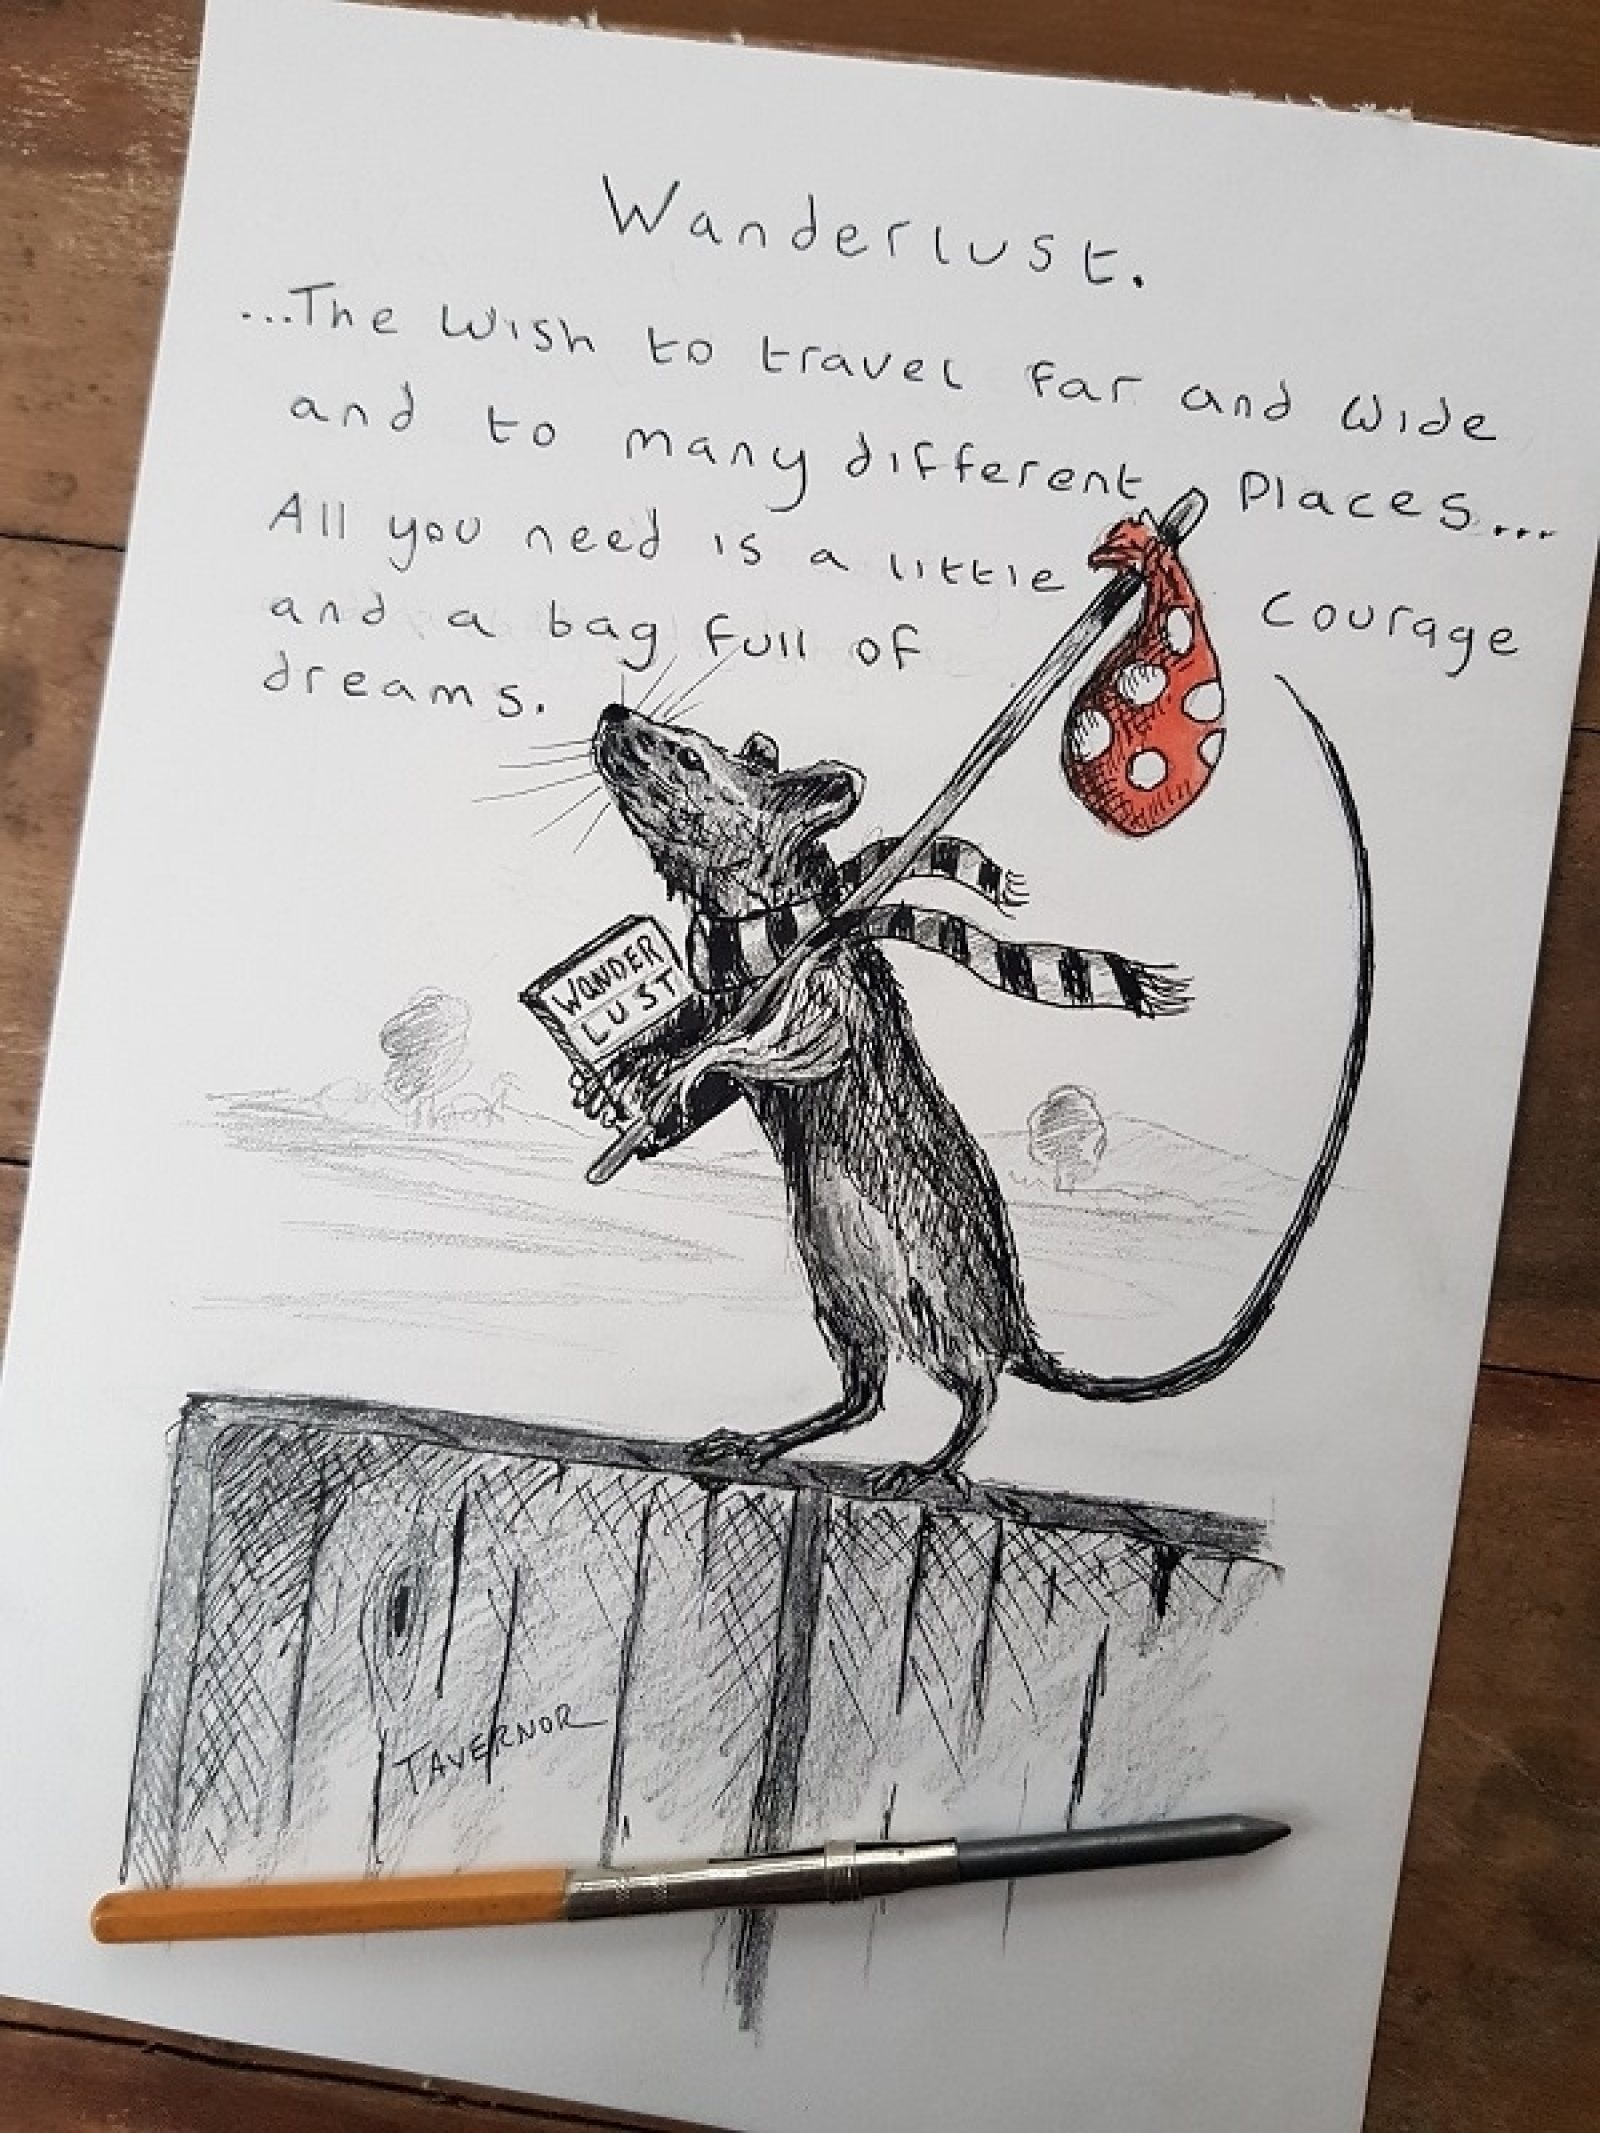 Wanderlust.
...The Wish to travel far and wide
and to many different places...
All you need is a little courage
and a bag full of
dreams.
WANDER
LUST
TAVERNOR